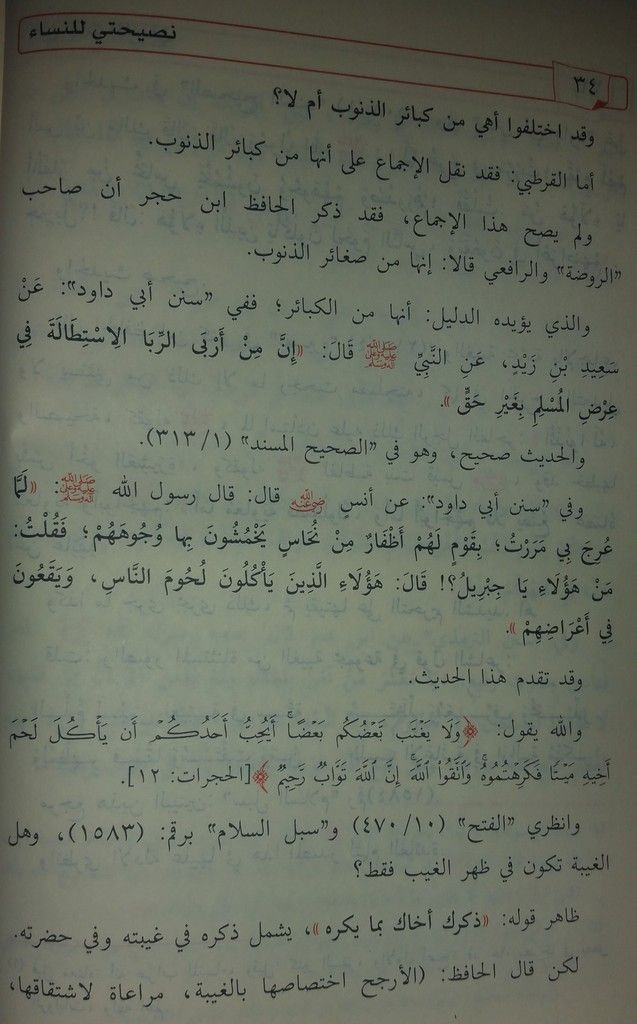 نصيحتي للنساء
٣٤
وقد اختلفوا أهي من كبائر الذنوب أم لا؟
أما القرطبي: فقد نقل الإجماع على أنها من كبائر الذنوب.
ولم يصح هذا الإجماع، فقد ذكر الحافظ ابن حجر أن صاحب
"الروضة" والرافعي قالا: إنها من صغائر الذنوب.
والذي يؤيده الدليل: أنها من الكبائر؛ ففي "سنن أبي داود": عَنْ
سَعِيدِ بْنِ زَيْدٍ، عَنِ النَّبِيِّ ﷺ قَالَ: «إِنَّ مِنْ أَرْبَى الرِّبَا الِاسْتِطَالَةَ فِي
عِرْضِ الْمُسْلِمِ بِغَيْرِ حَقٍّ».
والحديث صحيح، وهو في "الصحيح المسند" (٣١٣/١).
وفي "سنن أبي داود": عن أنسٍ رضي الله عنه قال: قال رسول الله ﷺ: «لَمَّا
عُرِجَ بِي مَرَرْتُ؛ بِقَوْمٍ لَهُمْ أَظْفَارٌ مِنْ نُحَاسٍ يَخْمُشُونَ بِها وُجُوهَهُمْ؛ فَقُلْتُ:
مَنْ هَؤُلَاءِ يَا جِبْرِيلُ؟! قَالَ: هَؤُلَاءِ الَّذِينَ يَأْكُلُونَ لُحُومَ النَّاسِ، وَيَقَعُونَ
فِي أَعْرَاضِهِمْ».
وقد تقدم هذا الحديث.
والله يقول: ﴿وَلَا يَغْتَب بَّعْضُكُم بَعْضًا ۚ أَيُحِبُّ أَحَدُكُمْ أَن يَأْكُلَ لَحْمَ
أَخِيهِ مَيْتًا فَكَرِهْتُمُوهُ ۚ وَاتَّقُوا اللَّهَ ۚ إِنَّ اللَّهَ تَوَّابٌ رَّحِيمٌ﴾ [الحجرات: ١٢].
وانظري "الفتح" (٤٧٠/١٠) و"سبل السلام" برقم: (١٥٨٣)، وهل
الغيبة تكون في ظهر الغيب فقط؟
ظاهر قوله: «ذكرك أخاك بما يكره»، يشمل ذكره في غيبته وفي حضرته.
لكن قال الحافظ: (الأرجح اختصاصها بالغيبة، مراعاة لاشتقاقها،